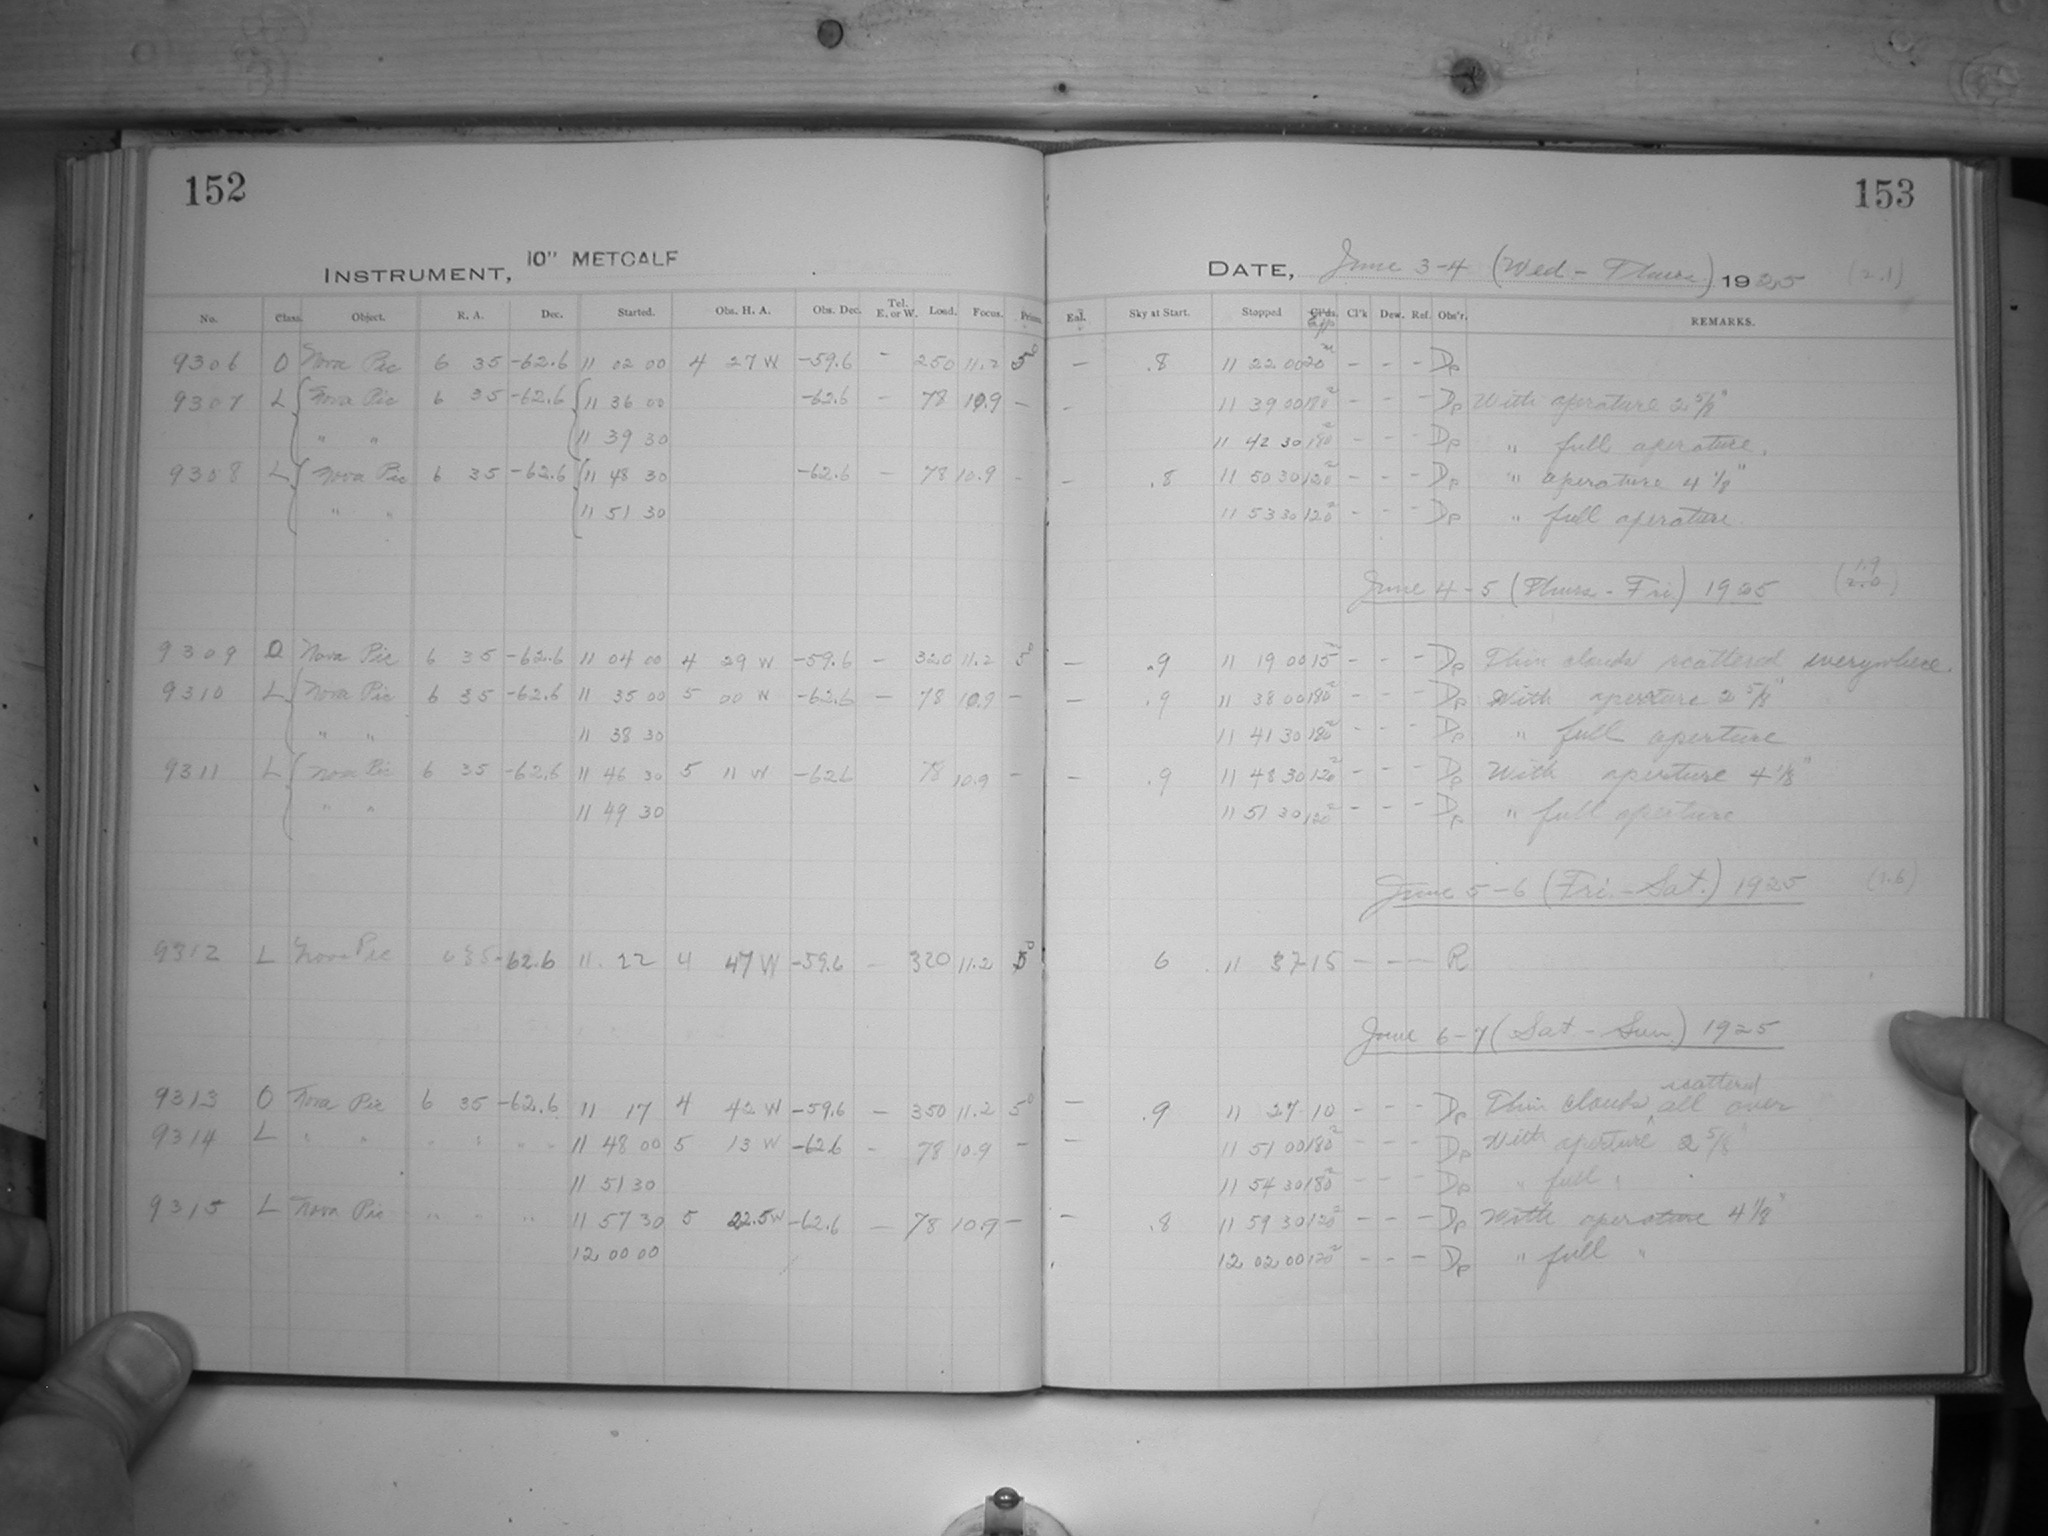 152
INSTRUMENT, 10" METCALF
No. Class. Object. R. A. Dec. Started. Obs. H. A. Obs. Dec. Tel. E. or W. Load. Focus. Prism.
9306 O Nova Pic 6 35 -62.6 11 02 00 4 27 W -59.6 - 250 11.2 5°
9307 L Nova Pic 6 35 -62.6 11 36 00 -62.6 - 78 10.9 -
" " 11 39 30
9308 L Nova Pic 6 35 -62.6 11 48 30 -62.6 - 78 10.9 -
" " 11 51 30
9309 O Nova Pic 6 35 -62.6 11 04 00 4 29 W -59.6 - 320 11.2 5°
9310 L Nova Pic 6 35 -62.6 11 35 00 5 00 W -62.6 - 78 10.9 -
" " 11 38 30
9311 L Nova Pic 6 35 -62.6 11 46 30 5 11 W -62.6 78 10.9 -
" " 11 49 30
9312 L Nova Pic 6 35 -62.6 11 22 4 47 W -59.6 - 320 11.2 5°
9313 O Nova Pic 6 35 -62.6 11 17 4 42 W -59.6 - 350 11.2 5°
9314 L " " " " " " 11 48 00 5 13 W -62.6 - 78 10.9 -
11 51 30
9315 L Nova Pic " " " 11 57 30 5 22.5 W -62.6 - 78 10.9 -
12 00 00
153
DATE, June 3-4 (Wed - Thurs) 1925 (2.1)
Sky at Start. Stopped Cl'k Dew. Ref. Obs'r. REMARKS.
- .8 11 22 00 20m - - - Dp
- 11 39 00 180s - - - Dp With aperature 2 5/8"
11 42 30 180s - - - Dp " full aperature.
- .8 11 50 30 120s - - - Dp " aperature 4 1/8"
11 53 30 120s - - - Dp " full aperature.
June 4-5 (Thurs - Fri) 1925 (1.9
2.0)
- .9 11 19 00 15m - - - Dp Thin clouds scattered everywhere.
- .9 11 38 00 180s - - - Dp With aperture 2 5/8"
11 41 30 180s - - - Dp " full aperture
- .9 11 48 30 120s - - - Dp With aperture 4 1/8"
11 51 30 120s - - - Dp " full aperture
June 5-6 (Fri. - Sat.) 1925 (1.6)
6 11 37 15 - - - R
June 6-7 (Sat - Sun.) 1925
- .9 11 27 10 - - - Dp Thin clouds scattered all over
- 11 51 00 180s - - - Dp With aperture 2 5/8"
11 54 30 180s - - - Dp " full "
- .8 11 59 30 120s - - - Dp With aperature 4 1/8"
12 02 00 120s - - - Dp " full "